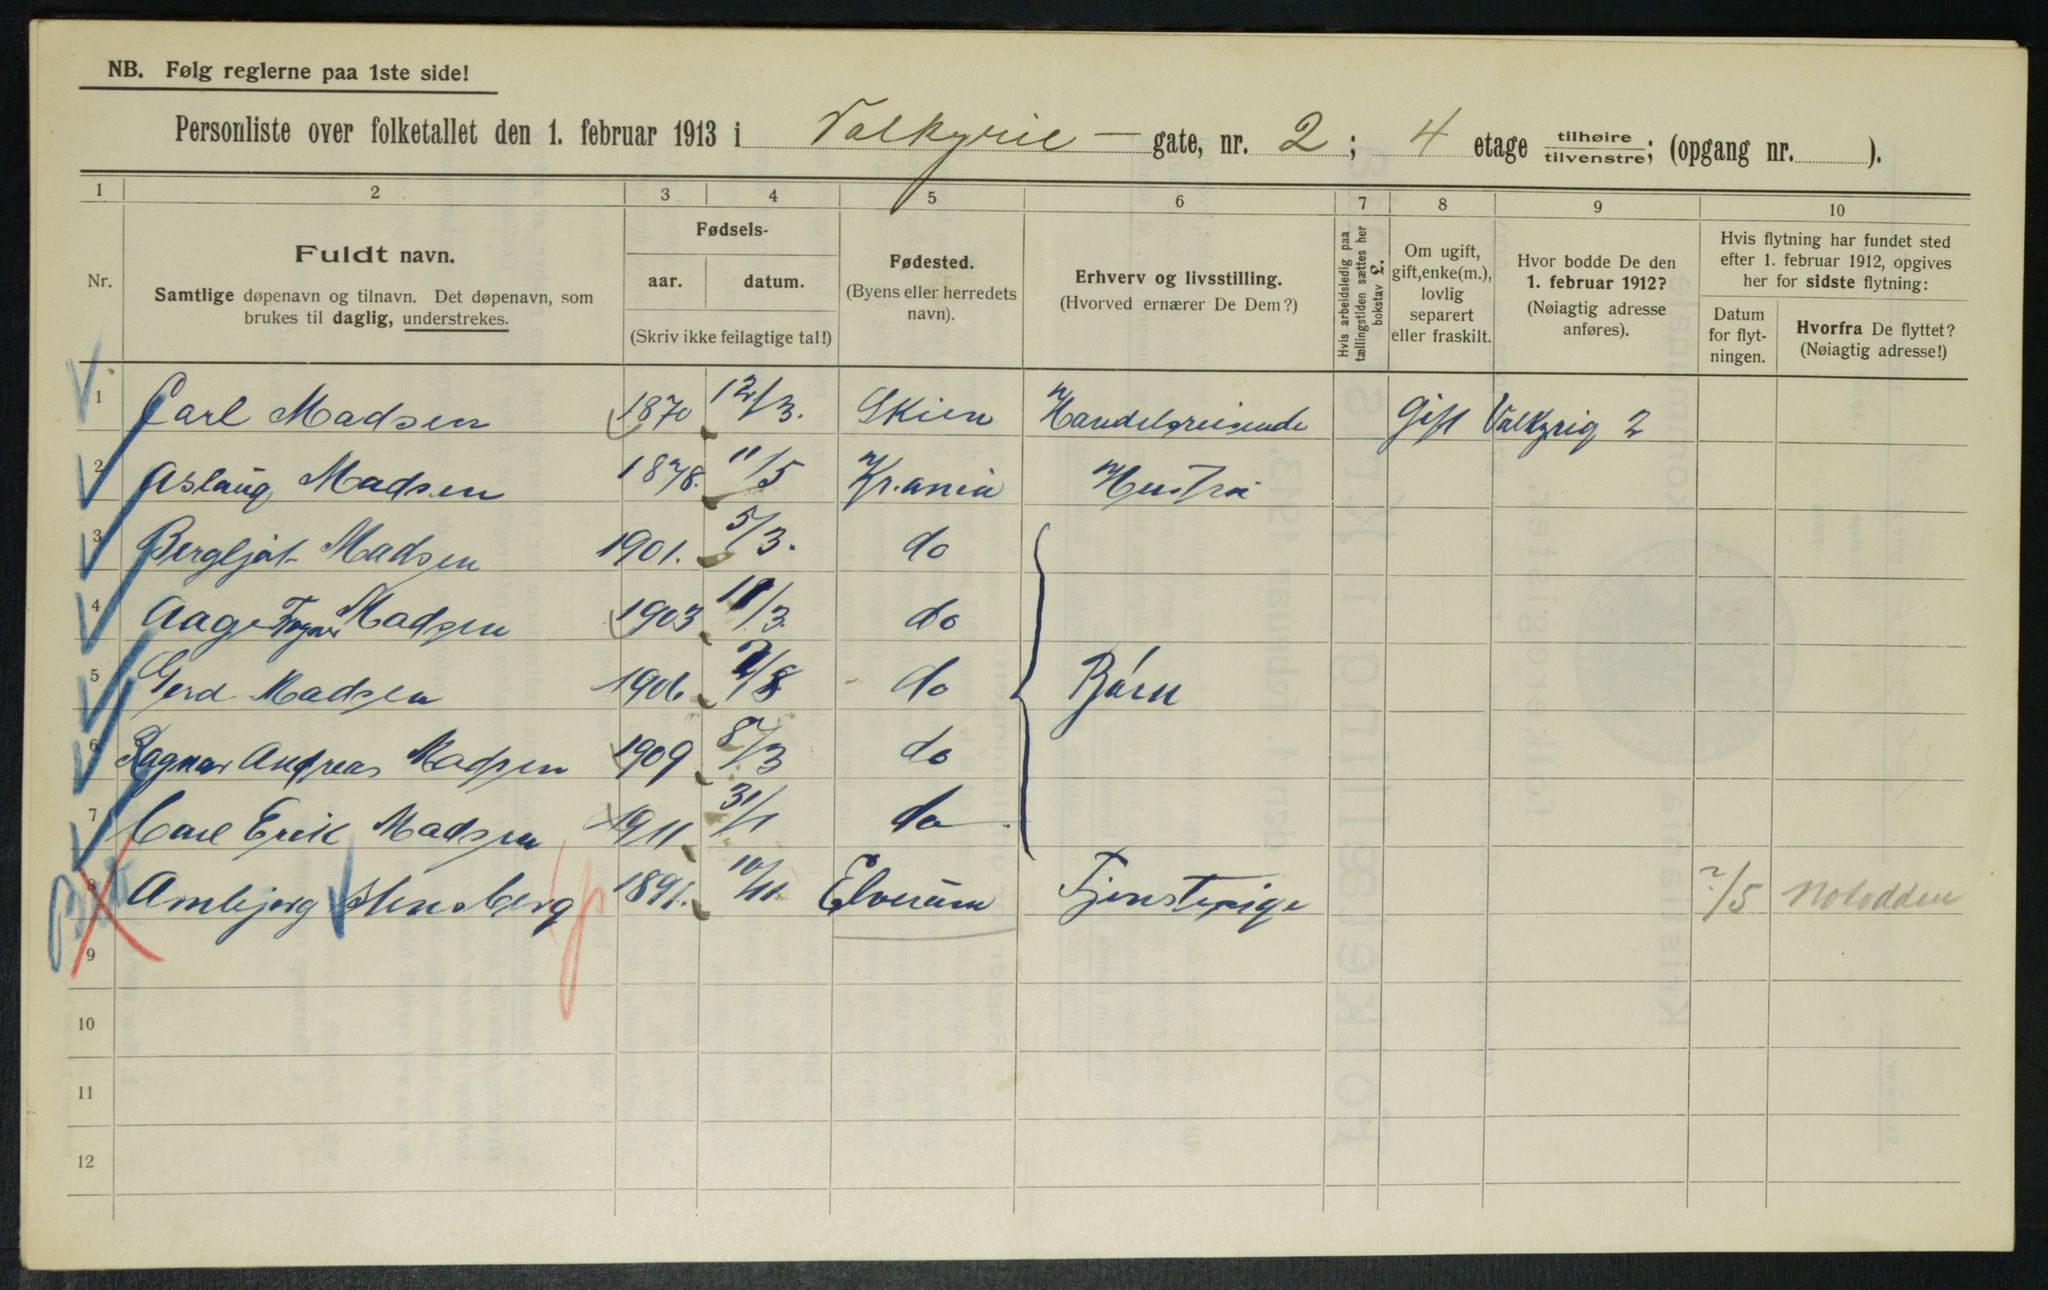 NB. Følg reglerne paa 1ste side!
Personliste over folketallet den 1. februar 1913 i Valkyrie - gate, nr. 2; 4 etage tilhøire / tilvenstre; (opgang nr. ).
1 2 3 4 5 6 7 8 9 10
Nr.
Fuldt navn.
Samtlige døpenavn og tilnavn. Det døpenavn, som
brukes til daglig, understrekes.
Fødsels-
aar. datum.
(Skriv ikke feilagtige tal!)
Fødested.
(Byens eller herredets
navn).
Erhverv og livsstilling.
(Hvorved ernærer De Dem?)
Hvis arbeidsledig paa
tællingstiden sættes her
bokstav L.
Om ugift,
gift, enke(m.),
lovlig
separert
eller fraskilt.
Hvor bodde De den
1. februar 1912?
(Nøiagtig adresse
anføres).
Hvis flytning har fundet sted
efter 1. februar 1912, opgives
her for sidste flytning:
Datum
for flyt-
ningen.
Hvorfra De flyttet?
(Nøiagtig adresse!)
1 Carl Madsen 1870 12/3. Skien Handelsreisende Gift Valkyrig 2
2 Aslaug Madsen 1878. 11/5 Kr.ania Hustru
3 Bergljot Madsen 1901. 5/3. do
4 Aage Madsen 1903 11/3. do
5 Gerd Madsen 1906 2/8 do Børn
6 Ragnar Andreas Madsen 1909 8/3 do
7 Carl Erik Madsen 1911 31/1 do
8 Arnbjørg Stensberg 1891. 10/11 Elverum Tjenstepige 2/5 Notodden
9
10
11
12